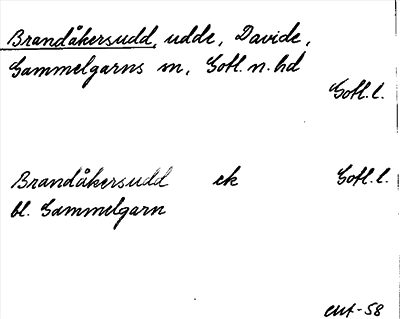 Brandåkersudd, udde, Davide,
Gammelgarns sn, Gotl. n. hd
Gotl. l.
Brandåkersudd ek Gotl. l.
bl. Gammelgarn